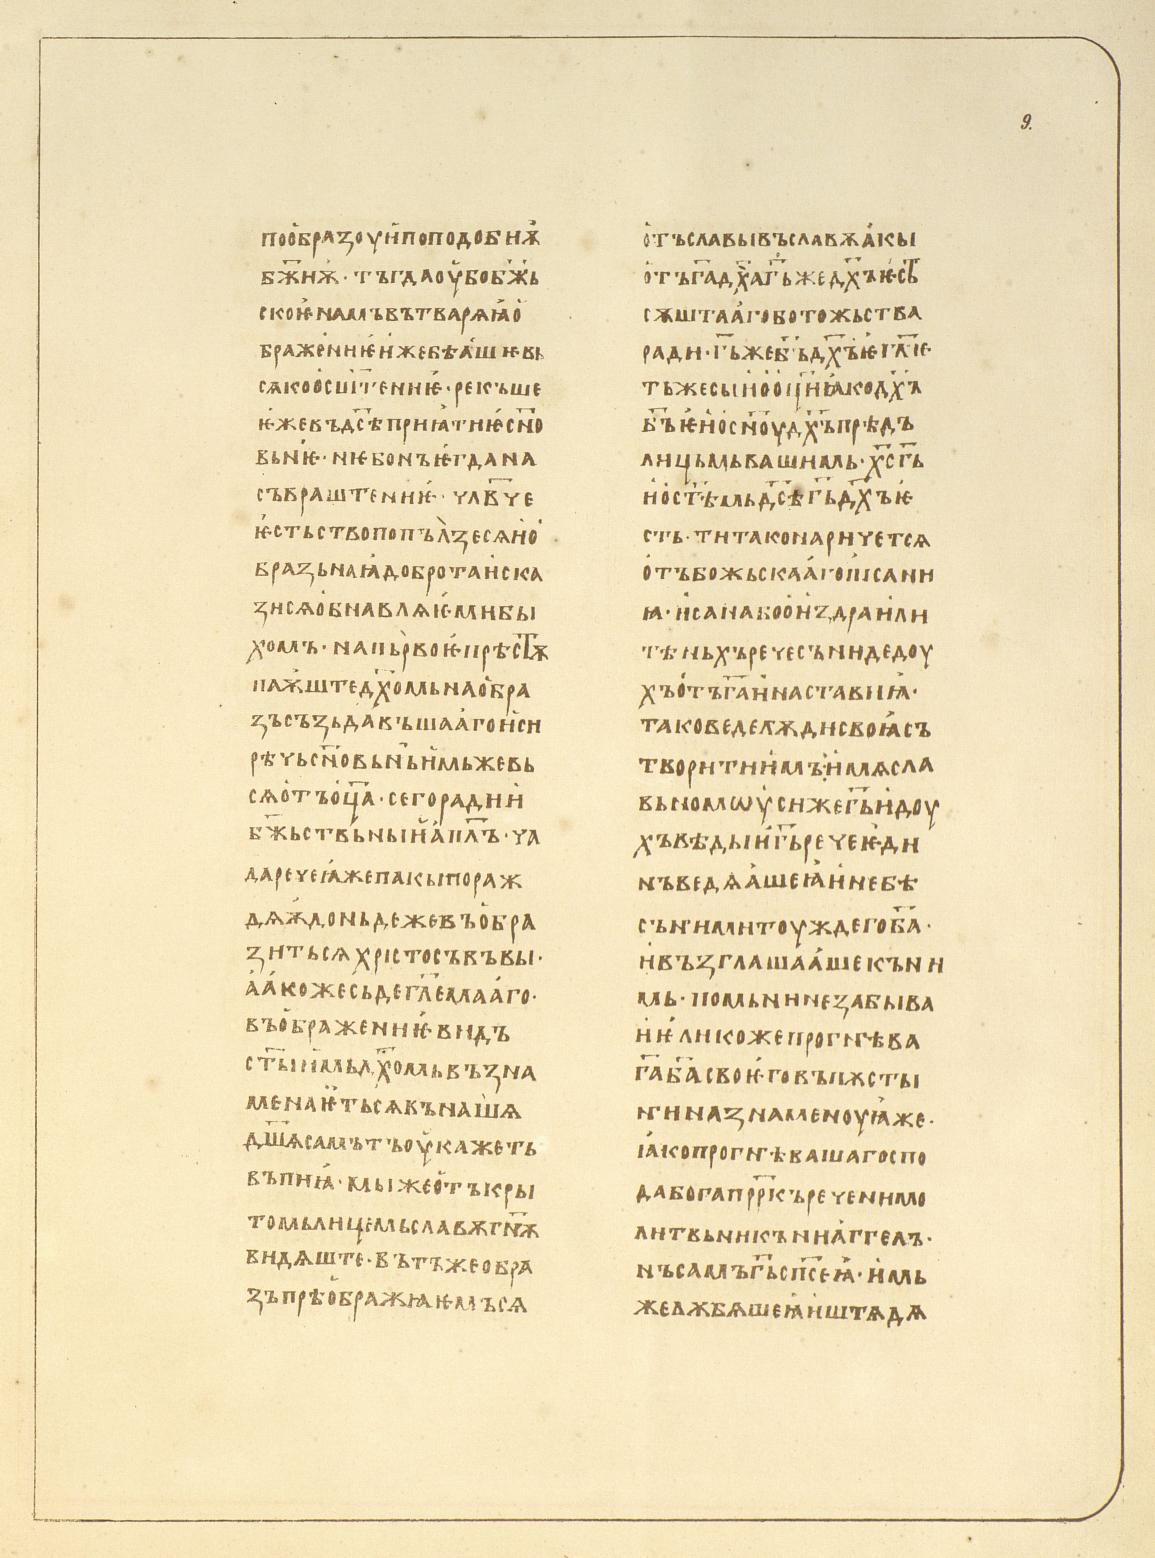 9.
пообразоуипоподобиѭ
бж҃иѭ· тъгдаоубобж҃ь
скоѥнамъвътварѧѩо
бражениѥижебѣашѥвь
сѧкоосщ҃ениѥ· рекъше
ѥжевъдс҃ѣприѩтиѥсн҃о
вьнѥ· нѥбонъѥгдана
съвраштениѥ· чл҃вче
ѥстьствопопълзесѧио
бразьнаѩдобротаиска
зисѧобнавлѧѥмибы
хомъ· напьрвоѥпрѣст҃ѫ
паѭштедх҃омьнаобра
зъсъзьдавъшаагоиси
рѣчьсн҃овьн҃ьимьжевь
сѧотъоц҃а· сегорадии
бж҃ьствьныиап҃лъ· ча
даречеѩжепакыпораж
дѧѭдоньдежевъобра
зитьсѧхрістосъвъвы·
аакожесьдегл҃емааго·
въображениѥвидъ
ст҃ыимьдх҃омьвъзна
менаѥтьсѧкънашѧ
дш҃ѧсамътъоукажеть
въпиѩ· мыжеотъкры
томьлицемьславѫгн҃ѭ
видѧште· вътъжеобра
зъпрѣображѩѥмъсѧ
отъславывъславѫакы
отъга҃дх҃аг҃ьжедх҃ъѥст҃ь
сѫштаагоботожьства
ради· г҃ьжеб҃ъдх҃ъѥгл҃ѥ
тьжесыиооц҃иѩкодх҃ъ
б҃ъѥиосн҃оудх҃ъпрѣдъ
лицьмьвашимь· х҃сг҃ь
иост҃ѣмьдс҃ѣг҃ьдх҃ъѥ
сть· титаконаричетсѧ
отъбожьскаагопісани
ѩ· исанабоокиздраили
тѣньхъречесънидедоу
хъотъга҃инаставиѩ·
таковеделѫдисвоѩсъ
творитиимъ·имѧсла
вьномѡусижег҃ьидоу
хъвѣдыиг҃ьречеѥди
нъведѧашеѩинебѣ
сънимитоуждегоба҃·
ивъзглашаашекъни
мь· помьнинезабыва
иѥликожепрогнѣва
га҃ба҃своѥговъпѫсты
ниназнаменоуѩже·
іакопрогнѣвашагоспо
дабогапрр҃къреченимо
литвьникъниаггелъ·
нъсамъг҃ьсп҃сеѩ· имь
желюбѧшеѩиштѧдѧ